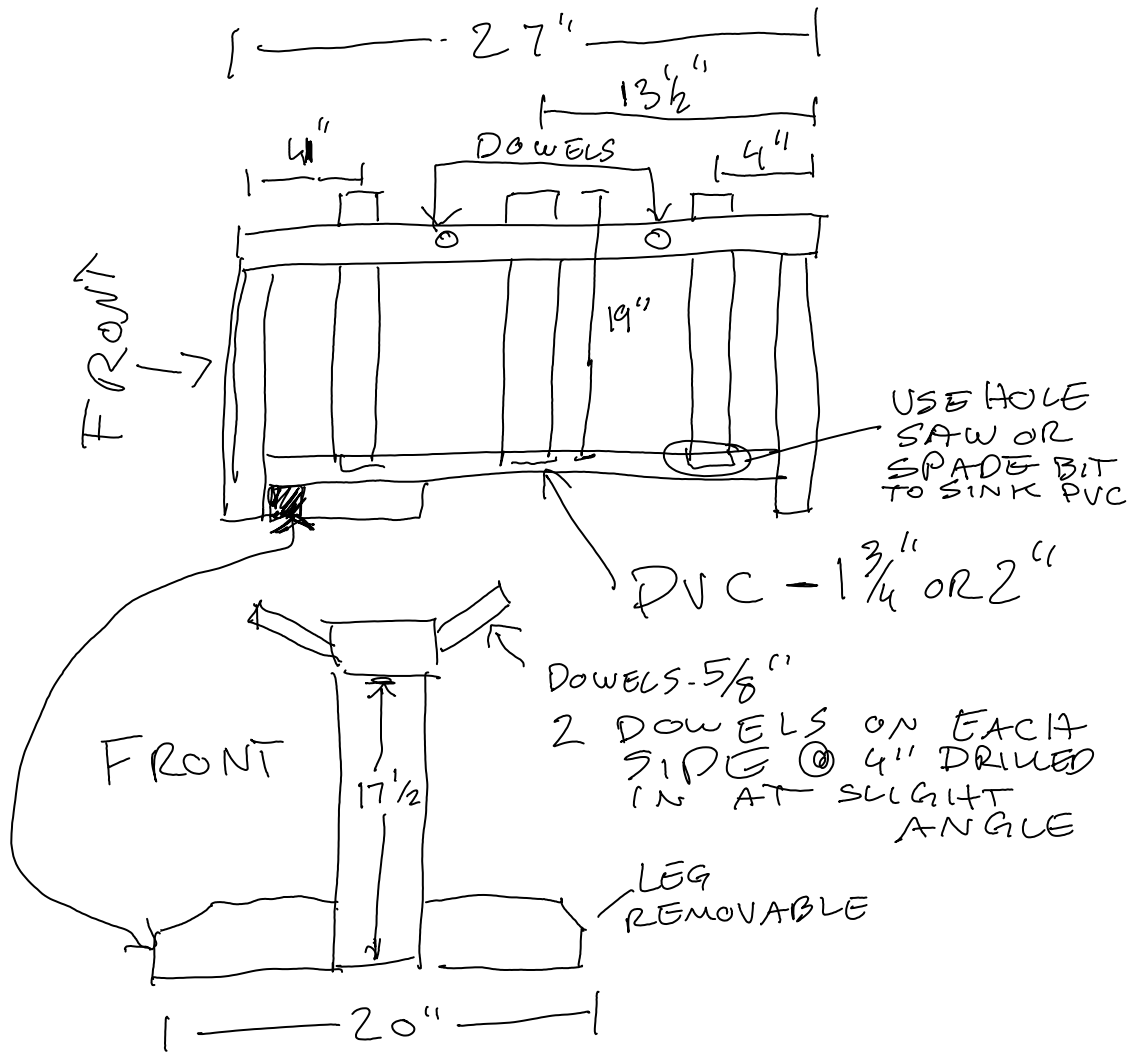 27"
13½"
4"
DOWELS
4"
FRONT
19"
USE HOLE
SAW OR
SPADE BIT
TO SINK PVC
PVC - 1 3/4" OR 2"
DOWELS - 5/8"
2 DOWELS ON EACH
SIDE @ 4" DRILLED
IN AT SLIGHT
ANGLE
FRONT
17 1/2
LEG
REMOVABLE
20"